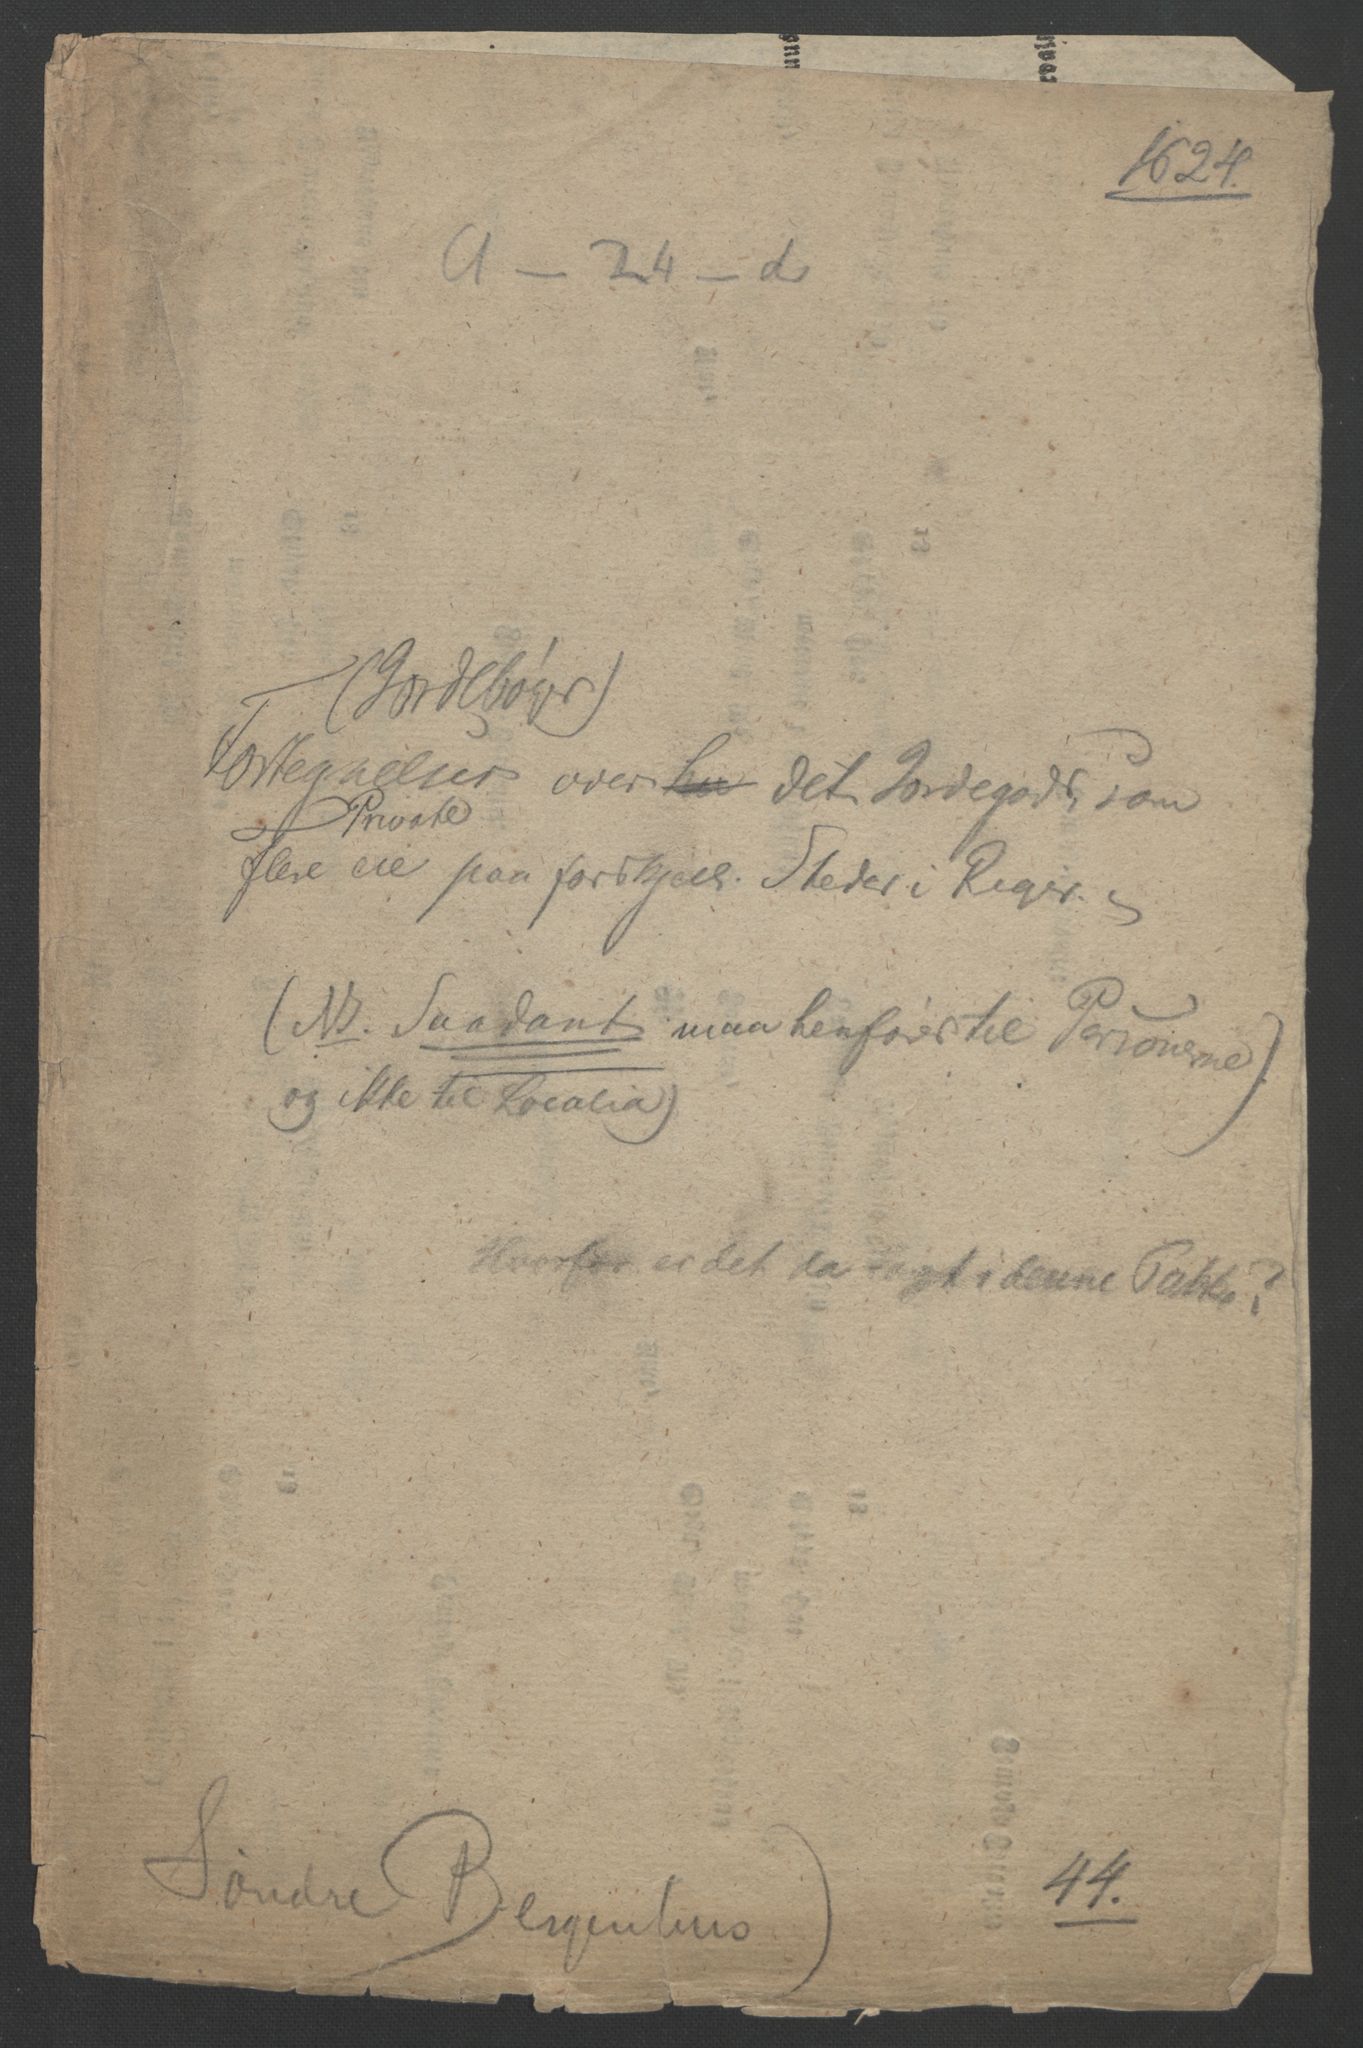 1624.
A — 24 — d
(Jordebøger)
Fortegnelser over det Jordegods, som
Private
flere eie paa forskjell. Steder i Riget.
(NB. Saadant maa henføres til Personerne
og ikke til Localia)
Hvorfor er det da lagt i denne Pakke?
Søndre Bergenhus)
44.